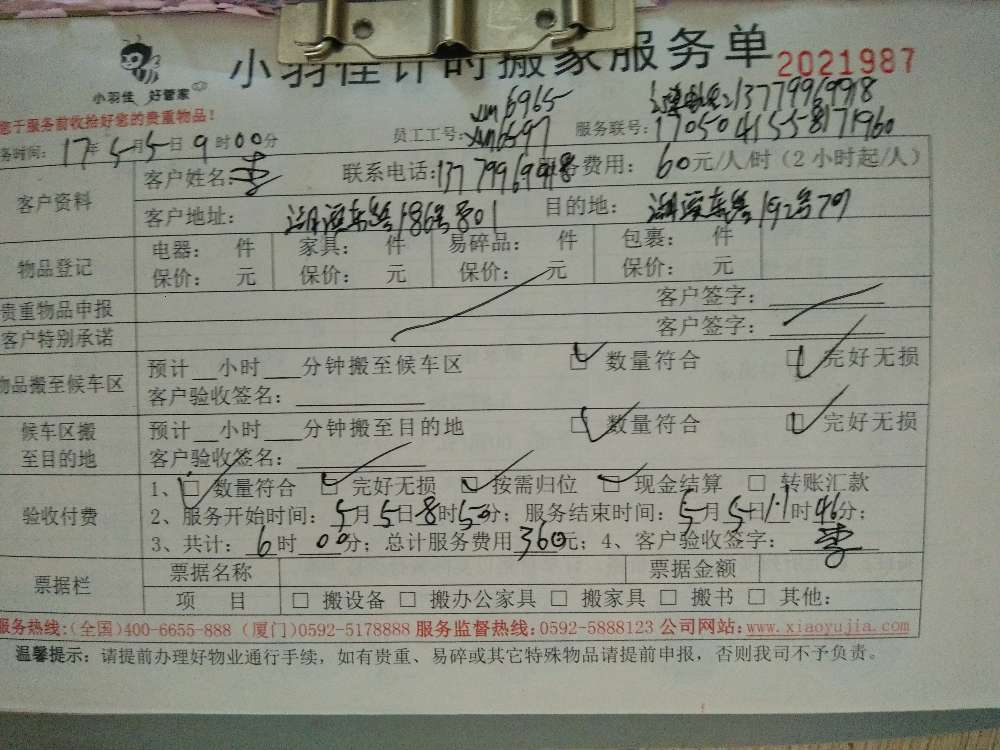 小羽佳计时搬家服务单 2021987
小羽佳 好管家
您于服务前收捡好您的贵重物品!
xm6965
13779969918
务时间: 17年5月5日9时00分 员工工号: xm6597 服务联号: 17050415558171960
客户资料 客户姓名: 李 联系电话: 13779969918 服务费用: 60元/人/时(2小时起/人)
客户地址: 湖滨东路186号801 目的地: 湖滨东路192号707
物品登记 电器: 件 家具: 件 易碎品: 件 包裹: 件
保价: 元 保价: 元 保价: 元 保价: 元
贵重物品申报 客户签字:
客户特别承诺 客户签字:
物品搬至候车区 预计__小时___分钟搬至候车区 □ 数量符合 □ 完好无损
客户验收签名:
候车区搬至目的地 预计__小时___分钟搬至目的地 □ 数量符合 □ 完好无损
客户验收签名:
验收付费 1、□ 数量符合 □ 完好无损 □ 按需归位 □ 现金结算 □ 转账汇款
2、服务开始时间: 5月5日8时50分; 服务结束时间: 5月5日11时46分;
3、共计: 6时00分; 总计服务费用360元; 4、客户验收签字: 李
票据栏 票据名称 票据金额
项 目 □ 搬设备 □ 搬办公家具 □ 搬家具 □ 搬书 □ 其他:
服务热线:(全国)400-6655-888 (厦门)0592-5178888 服务监督热线:0592-5888123 公司网站:www.xiaoyujia.com
温馨提示: 请提前办理好物业通行手续，如有贵重、易碎或其它特殊物品请提前申报，否则我司不予负责。